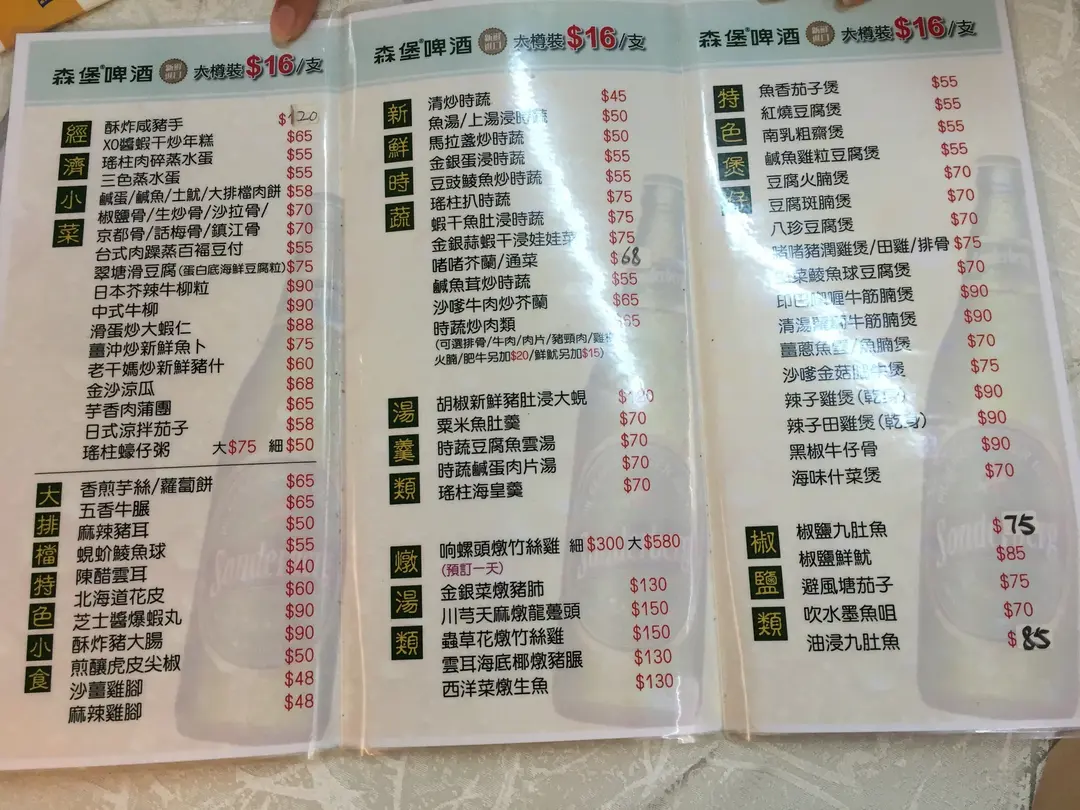 森堡®啤酒 大樽裝$16/支
經濟小菜
酥炸咸豬手 $120
XO醬蝦干炒年糕 $65
瑤柱肉碎蒸水蛋 $55
三色蒸水蛋 $55
鹹蛋/鹹魚/土魷/大排檔肉餅 $58
椒鹽骨/生炒骨/沙拉骨/ $70
京都骨/話梅骨/鎮江骨 $70
台式肉躁蒸百福豆付 $55
翠塘滑豆腐(蛋白底海鮮豆腐粒) $75
日本芥辣牛柳粒 $90
中式牛柳 $90
滑蛋炒大蝦仁 $88
薑沖炒新鮮魚卜 $75
老干媽炒新鮮豬什 $60
金沙涼瓜 $68
芋香肉蒲團 $65
日式涼拌茄子 $58
瑤柱蠔仔粥 大$75 細$50
大排檔特色小食
香煎芋絲/蘿蔔餅 $65
五香牛腒 $65
麻辣豬耳 $50
蜆蚧鯪魚球 $55
陳醋雲耳 $40
北海道花皮 $60
芝士醬爆蝦丸 $90
酥炸豬大腸 $90
煎釀虎皮尖椒 $50
沙薑雞腳 $48
麻辣雞腳 $48
森堡®啤酒 大樽裝$16/支
新鮮時蔬
清炒時蔬 $45
魚湯/上湯浸時蔬 $50
馬拉盞炒時蔬 $50
金銀蛋浸時蔬 $55
豆豉鯪魚炒時蔬 $55
瑤柱扒時蔬 $75
蝦干魚肚浸時蔬 $75
金銀蒜蝦干浸娃娃菜 $75
啫啫芥蘭/通菜 $68
鹹魚茸炒時蔬 $55
沙嗲牛肉炒芥蘭 $65
時蔬炒肉類 $65
(可選排骨/牛肉/肉片/豬頸肉/雞
火腩/肥牛另加$20/鮮魷另加$15)
湯羹類
胡椒新鮮豬肚浸大蜆
粟米魚肚羹 $70
時蔬豆腐魚雲湯 $70
時蔬鹹蛋肉片湯 $70
瑤柱海皇羹 $70
燉湯類
响螺頭燉竹絲雞 細$300 大$580
(預訂一天)
金銀菜燉豬肺 $130
川芎天麻燉龍躉頭 $150
蟲草花燉竹絲雞 $150
雲耳海底椰燉豬腒 $130
西洋菜燉生魚 $130
森堡®啤酒 大樽裝$16/支
特色煲仔
魚香茄子煲 $55
紅燒豆腐煲 $55
南乳粗齋煲 $55
鹹魚雞粒豆腐煲 $55
豆腐火腩煲 $70
豆腐斑腩煲 $70
八珍豆腐煲 $70
啫啫豬潤雞煲/田雞/排骨 $75
菜鯪魚球豆腐煲 $70
印巴咖喱牛筋腩煲 $90
清湯蘿蔔牛筋腩煲 $90
薑蔥魚/魚腩煲 $70
沙嗲金菇肥牛煲 $75
辣子雞煲(乾身) $90
辣子田雞煲(乾身) $90
黑椒牛仔骨 $90
海味什菜煲 $70
椒鹽類
椒鹽九肚魚 $75
椒鹽鮮魷 $85
避風塘茄子 $75
吹水墨魚咀 $70
油浸九肚魚 $85